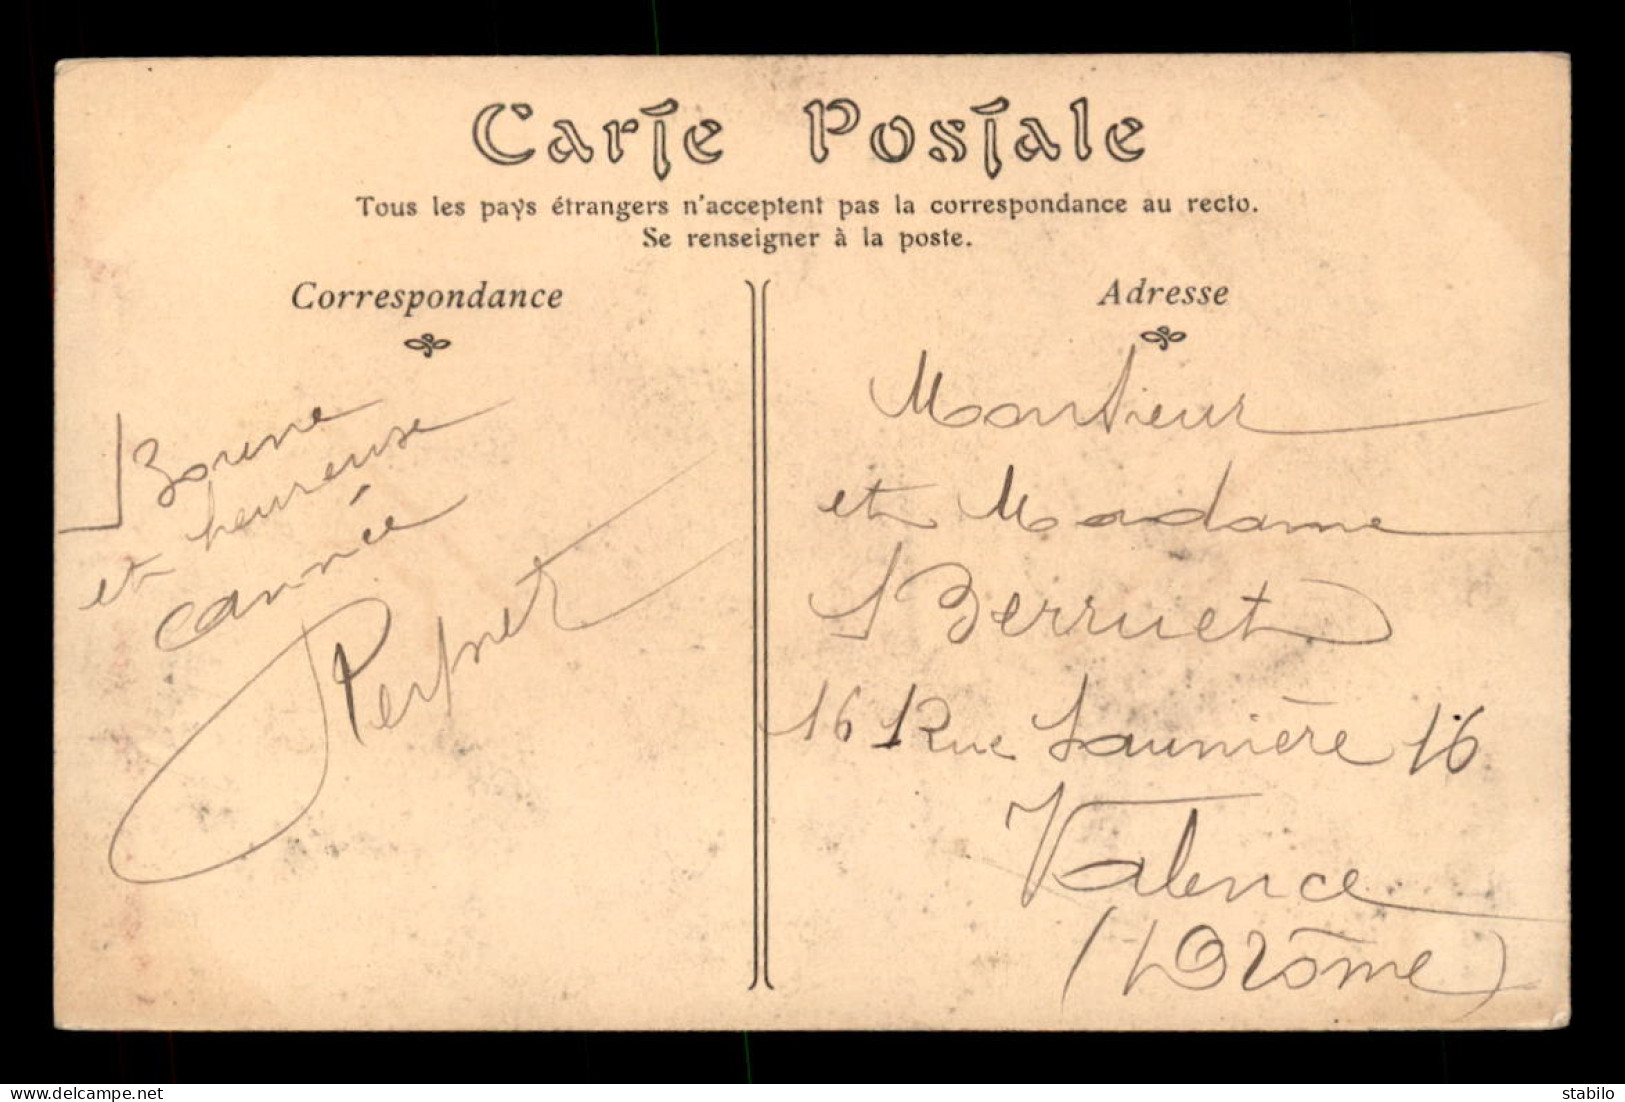 Carte Postale
Tous les pays étrangers n'acceptent pas la correspondance au recto.
Se renseigner à la poste.
Correspondance
Bonne
et heureuse
année
Adresse
Monsieur
et Madame
Berruet
16 Rue Saunière 16
Valence
(Drôme)
www.delcampe.net
stabilo